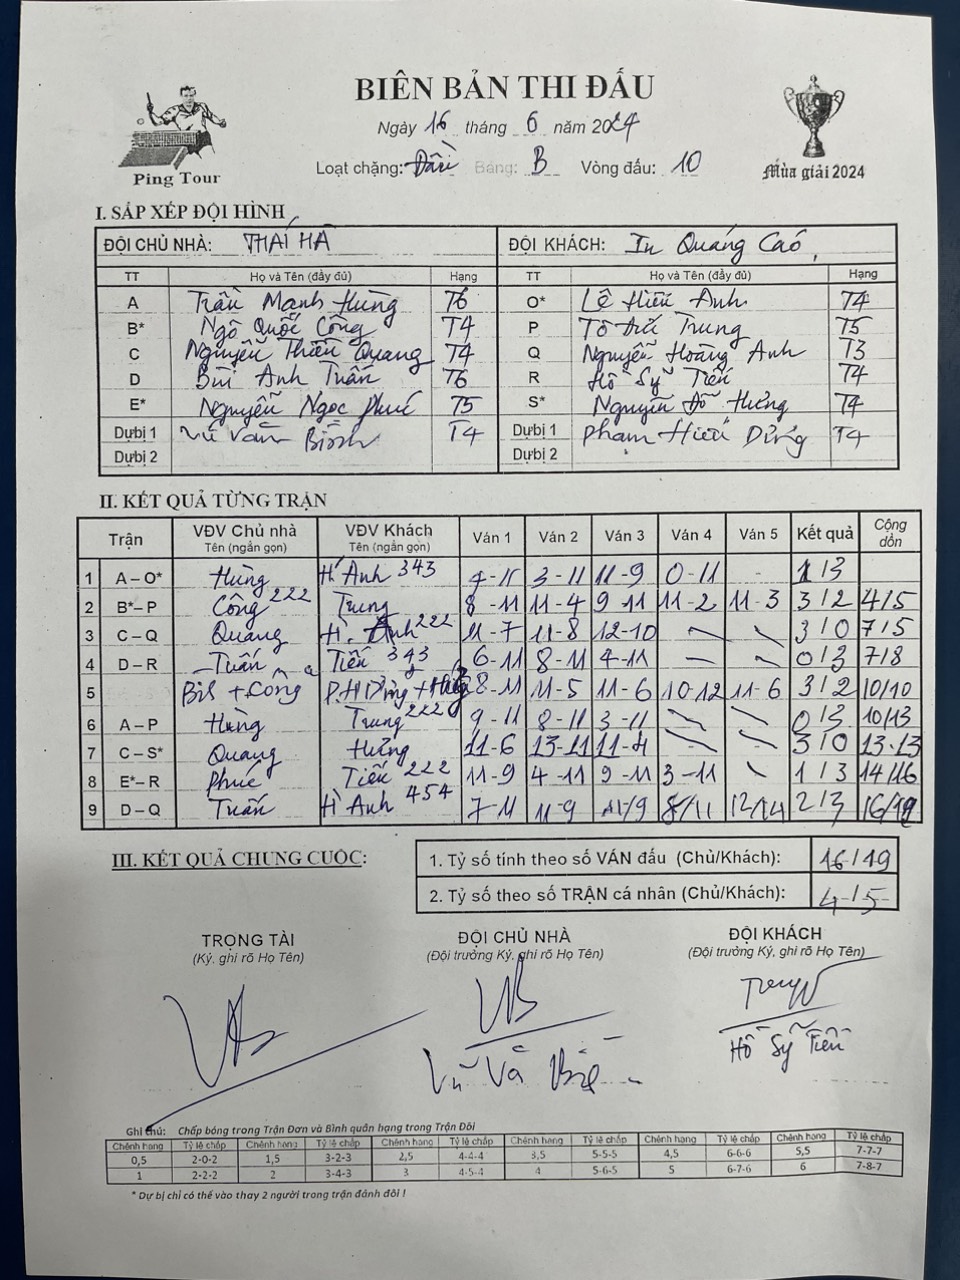 BIÊN BẢN THI ĐẤU
Ngày 16 tháng 6 năm 2024
Ping Tour
Loạt chặng: Đầu Bảng: B Vòng đấu: 10
Mùa giải 2024
I. SẮP XẾP ĐỘI HÌNH
ĐỘI CHỦ NHÀ: THÁI HÀ ĐỘI KHÁCH: In Quảng Cáo
TT Họ và Tên (đầy đủ) Hạng TT Họ và Tên (đầy đủ) Hạng
A Trần Mạnh Hùng T6 O* Lê Hiếu Anh T4
B* Ngô Quốc Công T4 P Tô Đức Trung T5
C Nguyễn Thiều Quang T4 Q Nguyễn Hoàng Anh T3
D Bùi Anh Tuấn T6 R Hồ Sỹ Tiến T4
E* Nguyễn Ngọc Phúc T5 S* Nguyễn Đỗ Hưởng T4
Dự bị 1 Vũ Văn T4 Dự bị 1 Phạm Hiếu Dũng T4
Dự bị 2 Dự bị 2
II. KẾT QUẢ TỪNG TRẬN
Trận VĐV Chủ nhà Tên (ngắn gọn) VĐV Khách Tên (ngắn gọn) Ván 1 Ván 2 Ván 3 Ván 4 Ván 5 Kết quả Cộng dồn
1 A – O* Hùng H Anh 343 3-11 11-9 0-11 - 1/3
2 B* – P Công 222 Trung 8-11 11-4 9-11 11-2 11-3 3/2 4/5
3 C – Q Quang H. Anh 222 11-7 11-8 12-10 3/0 7/5
4 D – R Tuấn Tiến 343 6-11 8-11 4-11 0/3 7/8
5 + Công 8-11 11-5 11-6 10-12 11-6 3/2 10/10
6 A – P Hùng Trung 222 9-11 8-11 3-11 0/3 10/13
7 C – S* Quang Hưởng 11-6 13-11 11-4 3/0 13-13
8 E* – R Phúc Tiến 222 11-9 4-11 9-11 3-11 1/3 14/16
9 D – Q Tuấn H Anh 454 7-11 11-9 11/9 8/11 12/14 2/3 16/19
III. KẾT QUẢ CHUNG CUỘC:
1. Tỷ số tính theo số VÁN đấu (Chủ/Khách): 16/19
2. Tỷ số theo số TRẬN cá nhân (Chủ/Khách): 4/5
TRỌNG TÀI ĐỘI CHỦ NHÀ ĐỘI KHÁCH
(Ký, ghi rõ Họ Tên) (Đội trưởng Ký, ghi rõ Họ Tên) (Đội trưởng Ký, ghi rõ Họ Tên)
Hồ Sỹ Tiến
Ghi chú: Chấp bóng trong Trận Đơn và Bình quân hạng trong Trận Đôi
Chênh hạng Tỷ lệ chấp Chênh hạng Tỷ lệ chấp Chênh hạng Tỷ lệ chấp Chênh hạng Tỷ lệ chấp Chênh hạng Tỷ lệ chấp Chênh hạng Tỷ lệ chấp
0,5 2-0-2 1,5 3-2-3 2,5 4-4-4 3,5 5-5-5 4,5 6-6-6 5,5 7-7-7
1 2-2-2 2 3-4-3 3 4-5-4 4 5-6-5 5 6-7-6 6 7-8-7
* Dự bị chỉ có thể vào thay 2 người trong trận đánh đôi !